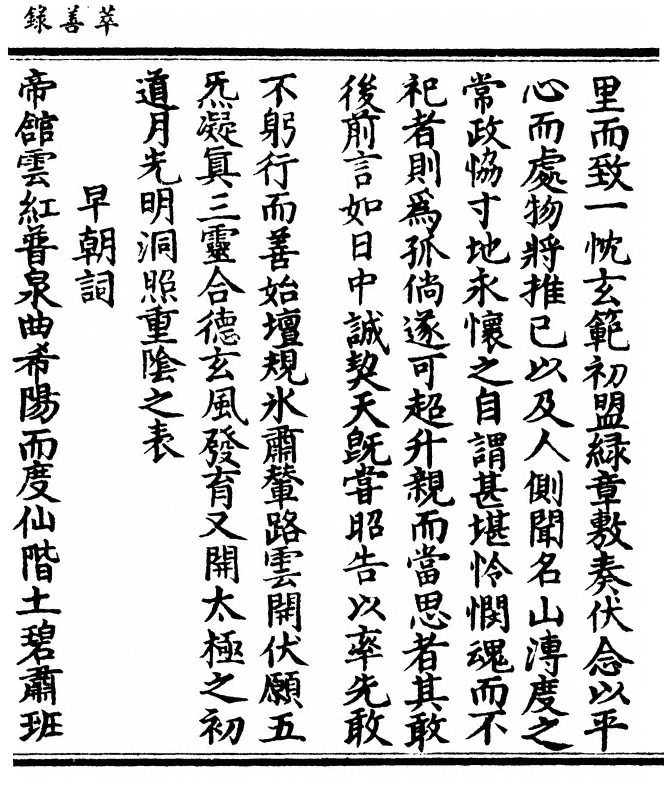 萃善錄
里而致一忱玄範初盟綠章敷奏伏念以平
心而處物將推已以及人側聞名山溥度之
常政恊寸地永懷之自謂甚堪怜憫魂而不
祀者則爲孤倘遂可超升親而當思者其敢
後前言如日中誠契天既甞昭告以率先敢
不躬行而善始壇規氷肅輦路雲開伏願五
炁凝眞三靈合德玄風發育又開太極之初
道月光明洞照重陰之表
早朝詞
帝舘雲紅普泉曲希陽而度仙階土碧肅班